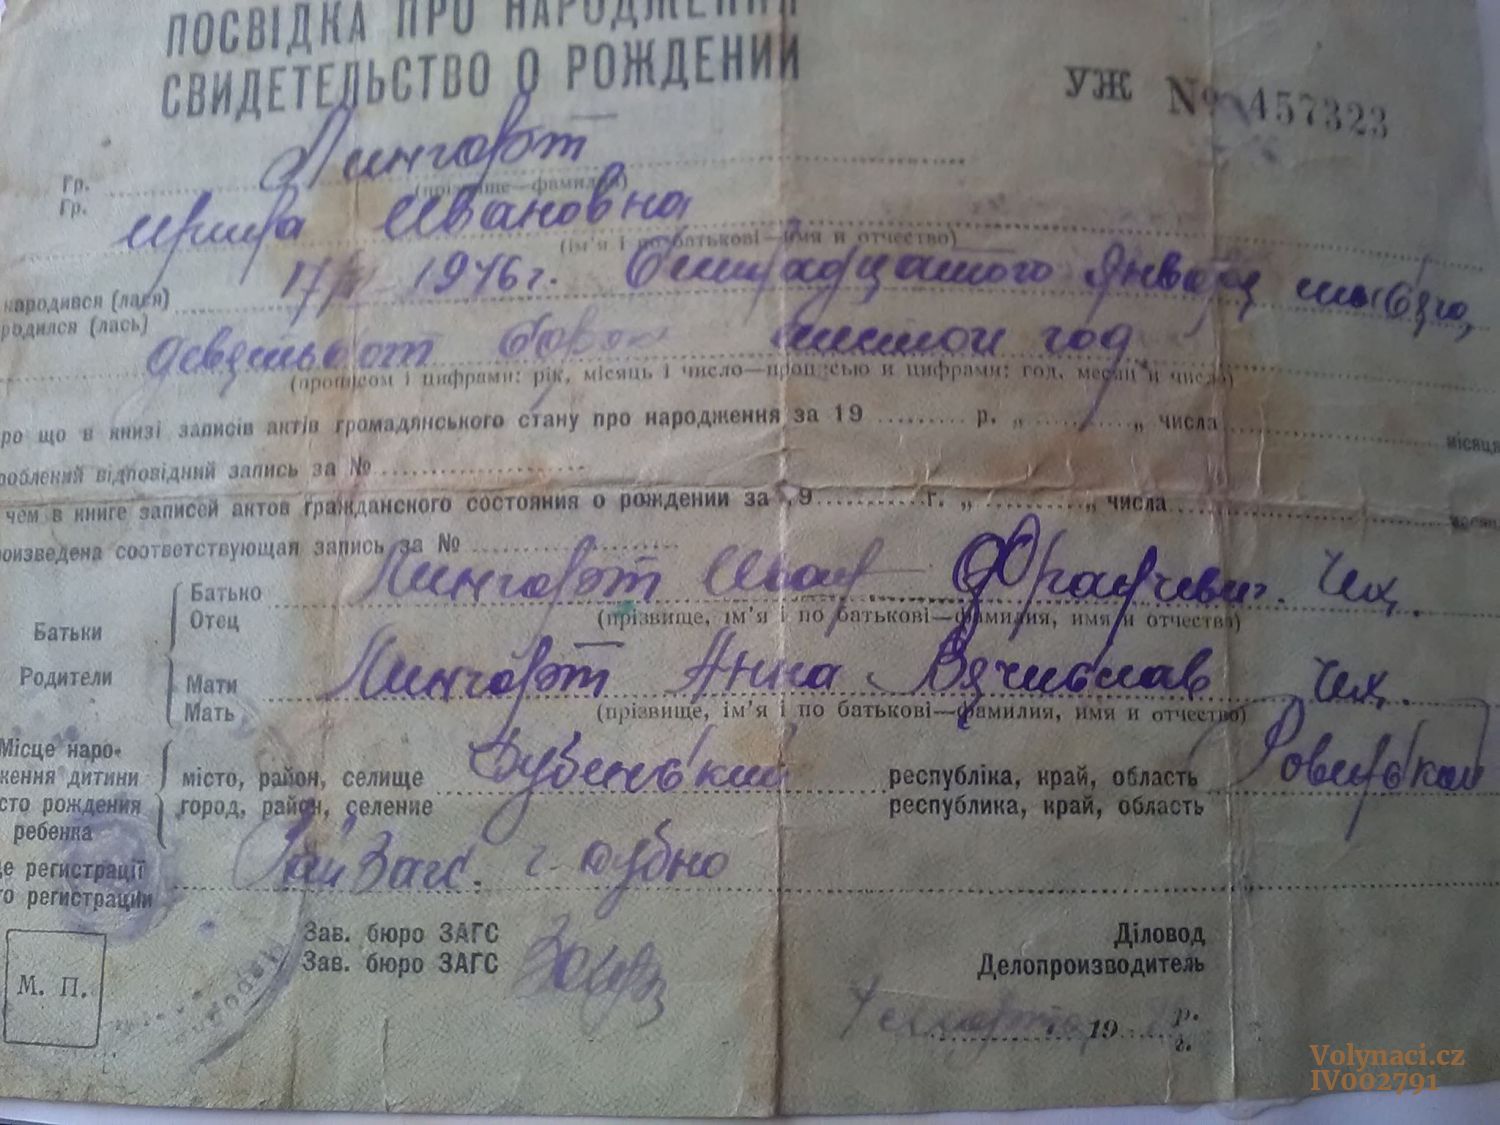 ПОСВІДКА ПРО НАРОДЖЕННЯ
СВИДЕТЕЛЬСТВО О РОЖДЕНИИ
УЖ № 457323
Гр. Лингарт
Гр. (прізвище—фамилия)
Ирина Ивановна
(ім'я і по батькові—имя и отчество)
народився (лася) 17/I 1946 г. Января
родился (лась)
девятьсот сорок шестой год
(прописом і цифрами: рік, місяць і число—прописью и цифрами: год, месяц и число)
про що в книзі записів актів громадянського стану про народження за 19 р. „ „ числа місяця
роблений відповідний запись за №
чем в книге записей актов гражданского состояния о рождении за 19 г. „ „ числа месяца
роизведена соответствующая запись за №
Батько Лингарт Иван Чех.
Отец (прізвище, ім'я і по батькові—фамилия, имя и отчество)
Батьки
Родители
Мати Лингарт Анна Вячеслав Чех.
Мать (прізвище, ім'я і по батькові—фамилия, имя и отчество)
Місце наро-
ження дитини місто, район, селище Дубенский республіка, край, область Ровенской
сто рождения город, район, селение республика, край, область
ребенка
це регистрації РайЗагс. г. Дубно
о регистрации
Зав. бюро ЗАГС Діловод
Зав. бюро ЗАГС Делопроизводитель
М. П.
марта 19 р.
г.
Volynaci.cz
IV002791